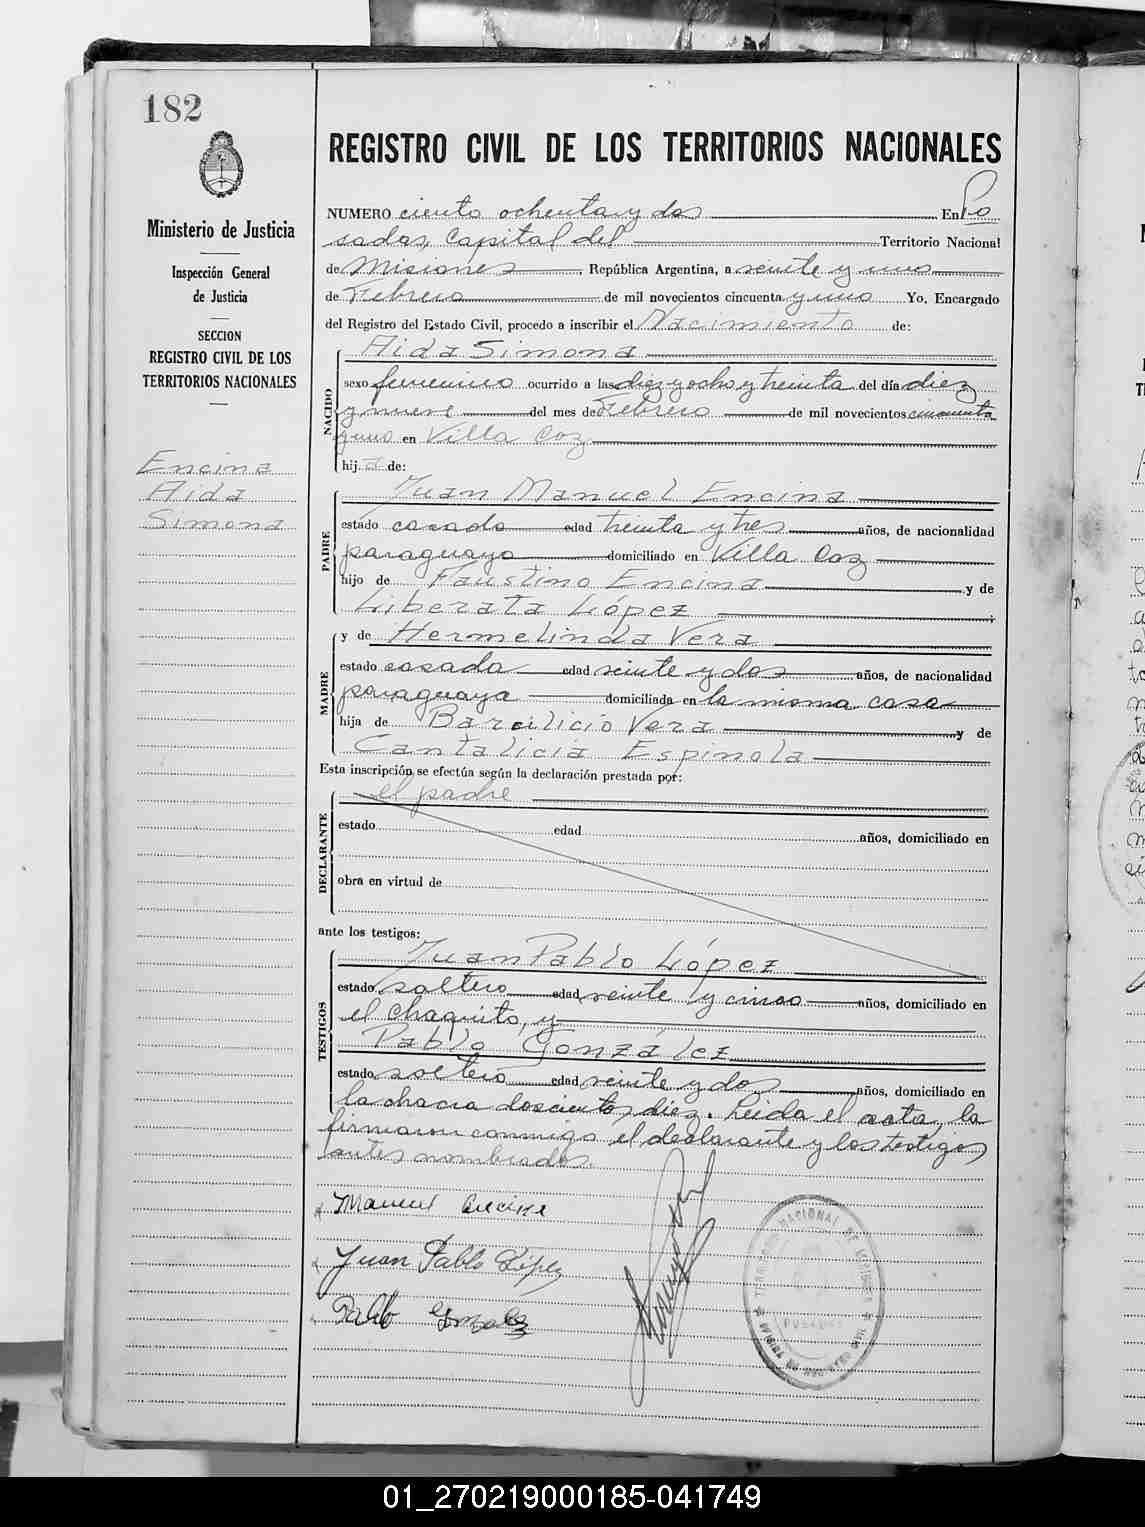 182
Ministerio de Justicia
Inspección General
de Justicia
SECCION
REGISTRO CIVIL DE LOS
TERRITORIOS NACIONALES
Encina
Aida
Simona
REGISTRO CIVIL DE LOS TERRITORIOS NACIONALES
NUMERO ciento ochenta y dos En Po
sadas, Capital del Territorio Nacional
de Misiones, República Argentina, a veinte y uno
de Febrero de mil novecientos cincuenta y uno Yo, Encargado
del Registro del Estado Civil, procedo a inscribir el Nacimiento de:
NACIDO
Aida Simona
sexo femenino ocurrido a las diez y ocho y treinta del día diez
y nueve del mes de Febrero de mil novecientos cincuenta
y uno en Villa Coz
hija de:
PADRE
Juan Manuel Encina
estado casado edad treinta y tres años, de nacionalidad
paraguayo domiciliado en Villa Coz
hijo de Faustino Encina y de
Liberata López ;
MADRE
y de Hermelinda Vera
estado casada edad veinte y dos años, de nacionalidad
paraguaya domiciliada en la misma casa
hija de Baralicio Vera y de
Cantalicia Espinola
Esta inscripción se efectúa según la declaración prestada por:
DECLARANTE
el padre
estado edad años, domiciliado en
obra en virtud de
ante los testigos:
TESTIGOS
Juan Pablo López
estado soltero edad veinte y cinco años, domiciliado en
el Chaquito, y
Pablo González
estado soltero edad veinte y dos años, domiciliado en
la chacra doscientos diez. Leida el acta, la
firmaron conmigo el declarante y los testigos
antes nombrados.
Manuel Encina
Juan Pablo López
Pablo Gonzalez
TERRITORIO NACIONAL DE MISIONES
POSADAS
OFICINA DE REGISTRO CIVIL
01_270219000185-041749